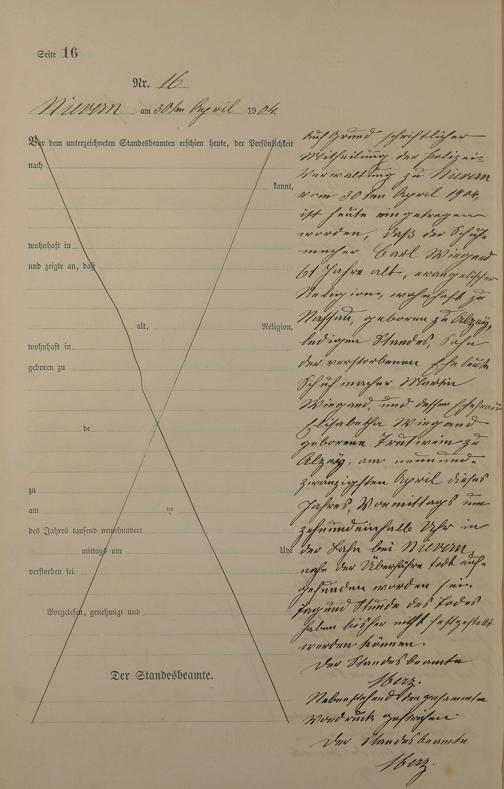 Seite 16
Nr. 16
Nievern am 30ten April 1904.
Vor dem unterzeichneten Standesbeamten erschien heute, der Persönlichkeit
nach
kannt,
wohnhaft in
und zeigte an, daß
alt, Religion,
wohnhaft in
geboren zu
de
zu
am ten
des Jahres tausend neunhundert
mittags um Uhr
verstorben sei.
Vorgelesen, genehmigt und
Der Standesbeamte.
Auf Grund schriftlicher
Mittheilung der Polizei-
Verwaltung zu Nievern
vom 30ten April 1904,
ist heute eingetragen
worden, daß der Schuh-
macher Carl Wiegand
61 Jahre alt, evangelischer
Religion, wohnhaft zu
Nassau, geboren zu Alzey,
ledigen Standes, Sohn
der verstorbenen Eheleute
Schuhmacher Martin
Wiegand, und dessen Ehefrau
Elisabetha Wiegand
geborene zu
Alzey, am neunund-
zwanzigsten April dieses
Jahres, Vormittags um
zehneinhalb Uhr in
der Lahn bei Nievern,
nahe der Überführe todt auf-
gefunden worden sei.
Tag und Stunde des Todes
haben bisher nicht festgestellt
werden können.
Der Standesbeamte
Nebenstehend den gesammten
Vordruck gestrichen.
Der Standesbeamte